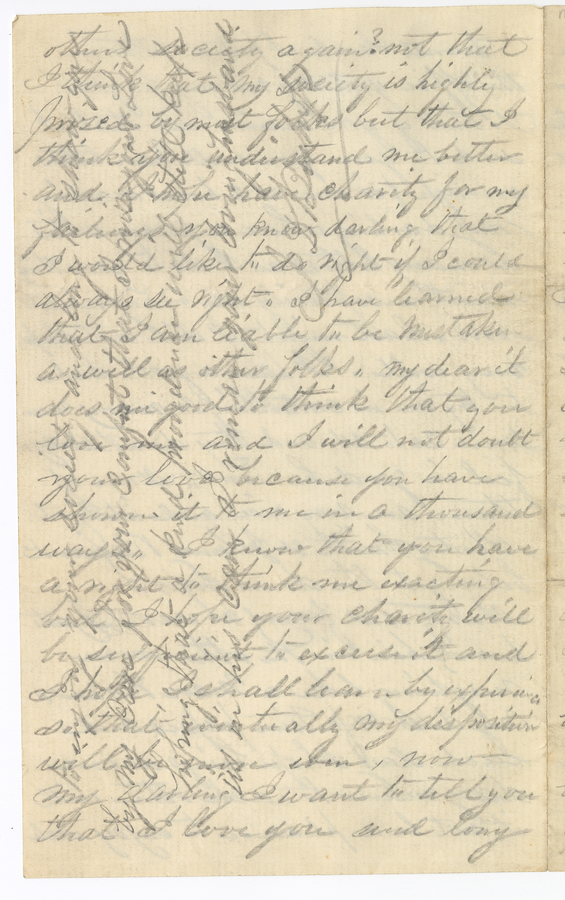 others society again? not that
I think that my society is highly
prized by most folks but that I
think you understand me better
and I know have charity for my
failings you know darling that
I would like to do right if I could
always see right. I have learned
that I am liable to be mistaken
as well as other folks. my dear it
does me good to think that you
love me and I will not doubt
your love because you have
shown it to me in a thousand
ways. I know that you have
a right to think me exacting
but I hope your charity will
be sufficient to excuse it and
I hope I shall learn by experience
so that eventually my disposition
will be more even, now
my darling I want to tell you
that I love you and long
to my
my Dear for your comfort
kind providence will
in his care I remain your loving husband